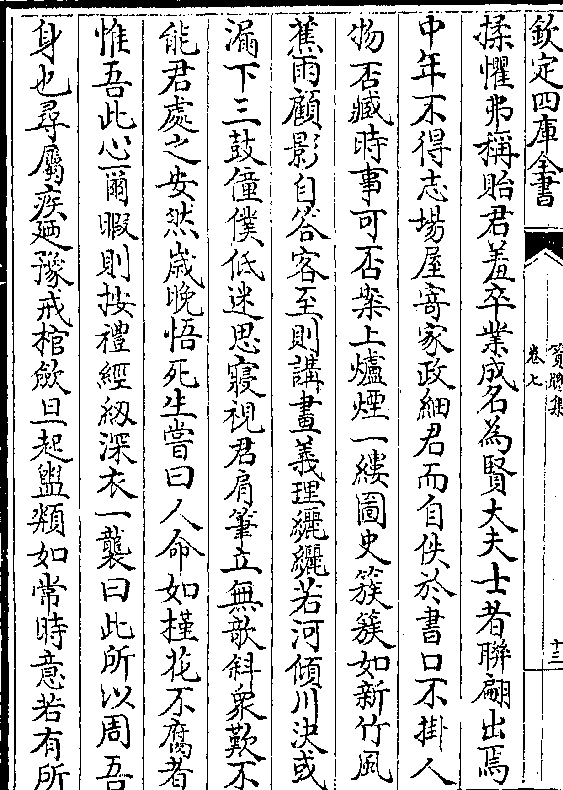 欽定四庫全書
卷七
十三
揉懼弗稱貽君羞卒業成名為賢大夫士者聯翩出焉
中年不得志場屋寄家政細君而自佚於書口不掛人
物否臧時事可否桒上爐煙一縷圖史簇簇如新竹風
蕉雨顧影自答客至則講畫義理纚纚若河傾川決或
漏下三鼓僮僕低迷思寢視君肩筆立無欹斜衆歎不
能君處之安然嵗晩悟死生嘗曰人命如槿花不腐者
惟吾此心爾暇則按禮經紉深衣一襲曰此所以周吾
身也尋屬疾廼豫戒棺斂旦起盥頮如常時意若有所